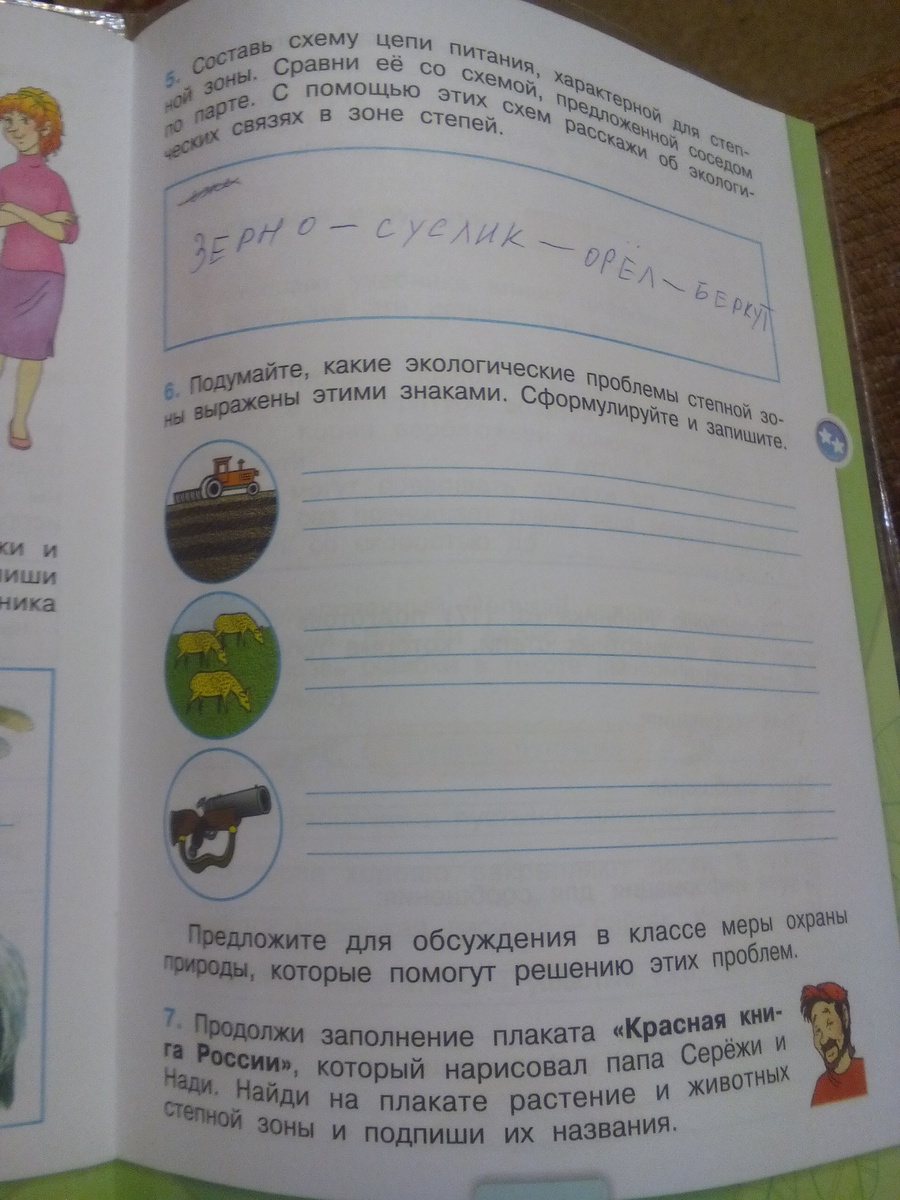 5. Составь схему цепи питания, характерной для степ-
ной зоны. Сравни её со схемой, предложенной соседом
по парте. С помощью этих схем расскажи об экологи-
ческих связях в зоне степей.
ЗЕРНО — СУСЛИК — ОРЁЛ — БЕРКУТ
6. Подумайте, какие экологические проблемы степной зо-
ны выражены этими знаками. Сформулируйте и запишите.
ки и
пиши
ника
Предложите для обсуждения в классе меры охраны
природы, которые помогут решению этих проблем.
7. Продолжи заполнение плаката «Красная кни-
га России», который нарисовал папа Серёжи и
Нади. Найди на плакате растение и животных
степной зоны и подпиши их названия.